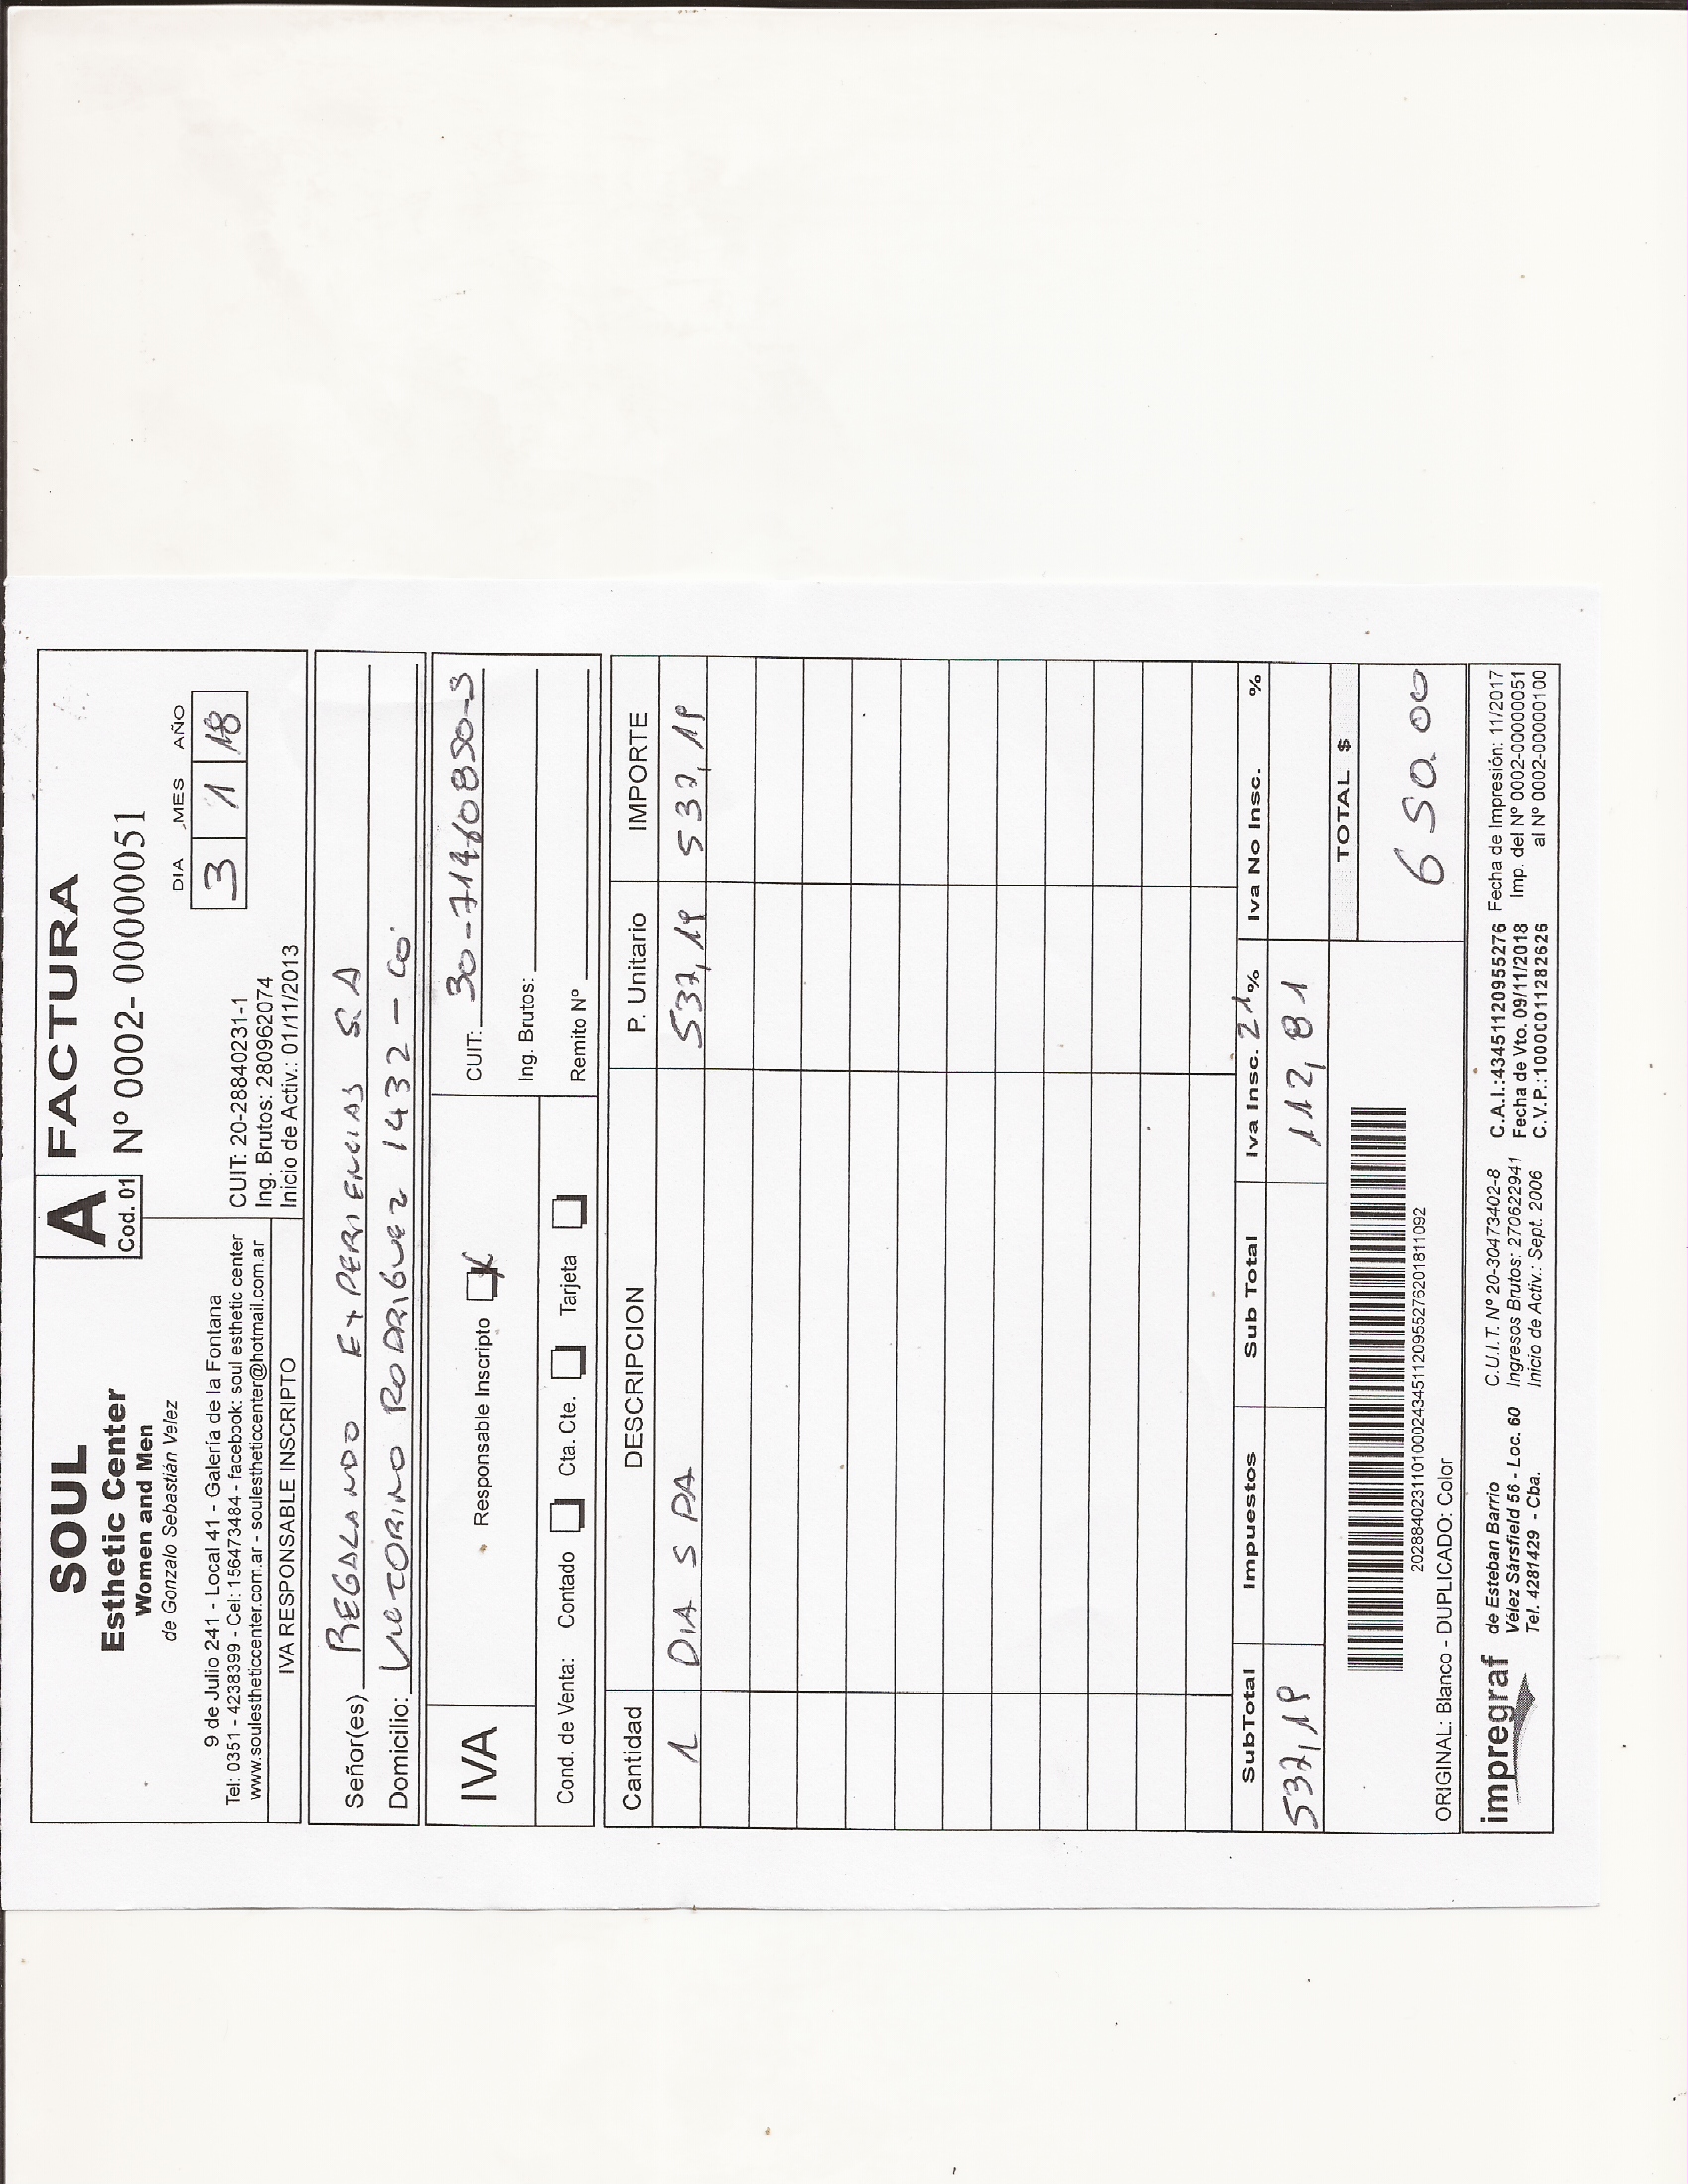 SOUL
Esthetic Center
Women and Men
de Gonzalo Sebastián Velez
9 de Julio 241 - Local 41 - Galería de la Fontana
Tel: 0351 - 4238399 - Cel: 156473484 - facebook: soul esthetic center
www.soulestheticcenter.com.ar - soulestheticcenter@hotmail.com.ar
IVA RESPONSABLE INSCRIPTO
A
Cod. 01
FACTURA
Nº 0002- 00000051
DIA MES AÑO
3 1 18
CUIT: 20-28840231-1
Ing. Brutos: 280962074
Inicio de Activ.: 01/11/2013
Señor(es) REGALANDO EXPERIENCIAS S.A
Domicilio: VICTORINO RODRIGUEZ 1432 - Co
IVA Responsable Inscripto X
CUIT: 30-71460850-3
Ing. Brutos:
Remito Nº
Cond. de Venta: Contado Cta. Cte. Tarjeta
Cantidad DESCRIPCION P. Unitario IMPORTE
1 DIA SPA 537,19 537,19
SubTotal Impuestos Sub Total Iva Insc. 21% Iva No Insc. %
537,19 112,81
TOTAL $
650.00
2028840231101000243451120955276201811092
ORIGINAL: Blanco - DUPLICADO: Color
impregraf
de Esteban Barrio
Vélez Sársfield 56 - Loc. 60
Tel. 4281429 - Cba.
C.U.I.T. Nº 20-30473402-8
Ingresos Brutos: 270622941
Inicio de Activ.: Sept. 2006
C.A.I.:43451120955276
Fecha de Vto. 09/11/2018
C.V.P.:10000011282626
Fecha de Impresión: 11/2017
Imp. del Nº 0002-00000051
al Nº 0002-00000100